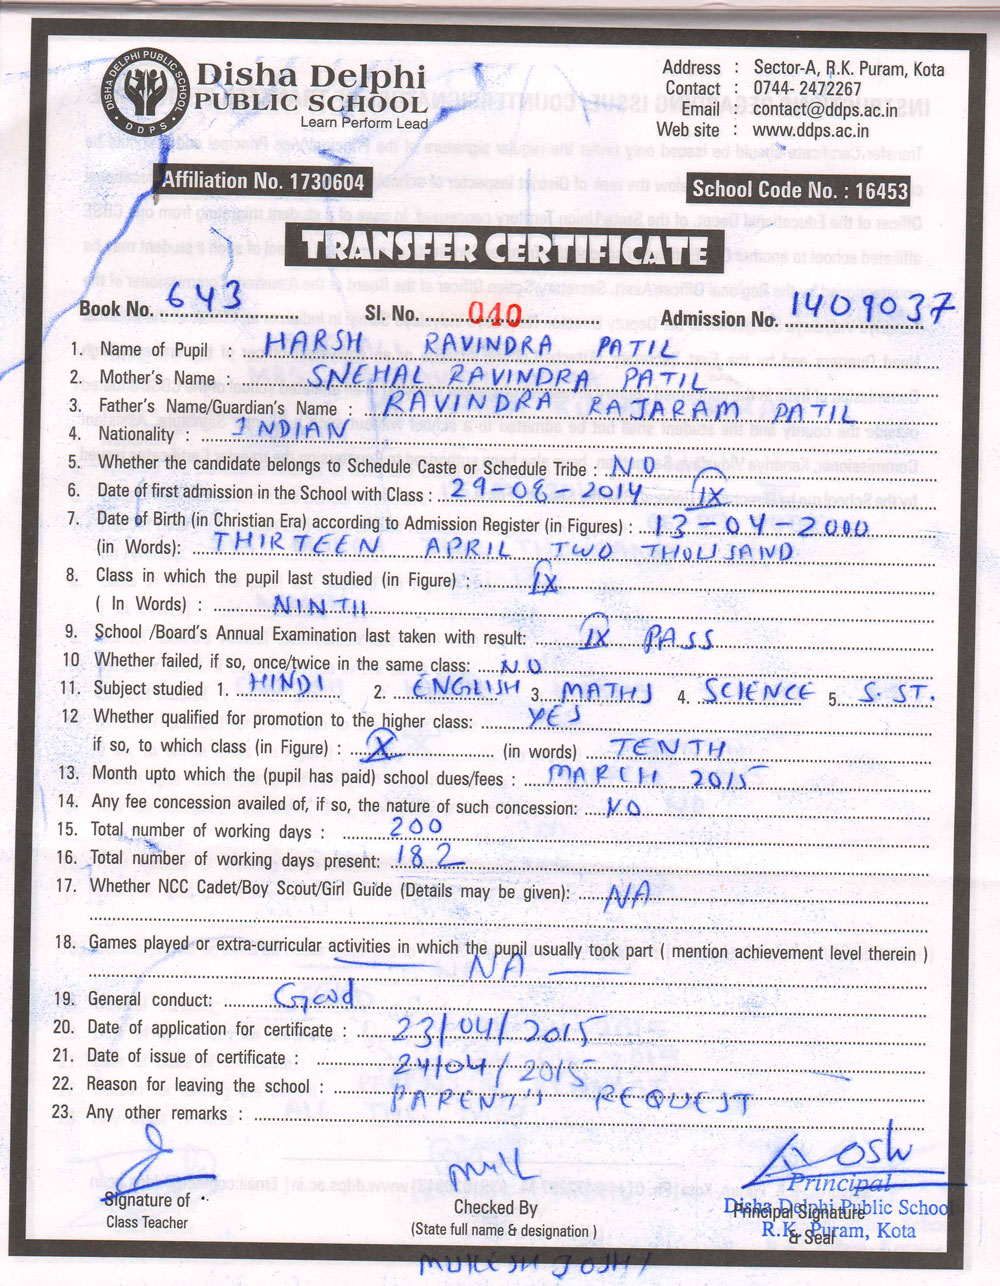 DISHA DELPHI PUBLIC SCHOOL
D D P S
Disha Delphi
PUBLIC SCHOOL
Learn Perform Lead
Address : Sector-A, R.K. Puram, Kota
Contact : 0744- 2472267
Email : contact@ddps.ac.in
Web site : www.ddps.ac.in
Affiliation No. 1730604
School Code No. : 16453
TRANSFER CERTIFICATE
Book No. 643 Sl. No. 040 Admission No. 1409037
1. Name of Pupil : HARSH RAVINDRA PATIL
2. Mother's Name : SNEHAL RAVINDRA PATIL
3. Father's Name/Guardian's Name : RAVINDRA RAJARAM PATIL
4. Nationality : INDIAN
5. Whether the candidate belongs to Schedule Caste or Schedule Tribe : NO
6. Date of first admission in the School with Class : 29-08-2014 IX
7. Date of Birth (in Christian Era) according to Admission Register (in Figures) : 13-04-2000
(in Words): THIRTEEN APRIL TWO THOUSAND
8. Class in which the pupil last studied (in Figure) : IX
( In Words) : NINTH
9. School /Board's Annual Examination last taken with result: IX PASS
10 Whether failed, if so, once/twice in the same class: NO
11. Subject studied 1. HINDI 2. ENGLISH 3. MATHS 4. SCIENCE 5. S.ST.
12 Whether qualified for promotion to the higher class: YES
if so, to which class (in Figure) : X (in words) TENTH
13. Month upto which the (pupil has paid) school dues/fees : MARCH 2015
14. Any fee concession availed of, if so, the nature of such concession: NO
15. Total number of working days : 200
16. Total number of working days present: 182
17. Whether NCC Cadet/Boy Scout/Girl Guide (Details may be given): NA
18. Games played or extra-curricular activities in which the pupil usually took part ( mention achievement level therein )
NA
19. General conduct: Good
20. Date of application for certificate : 23/04/2015
21. Date of issue of certificate : 24/04/2015
22. Reason for leaving the school : PARENT'S REQUEST
23. Any other remarks :
Signature of
Class Teacher
Checked By
(State full name & designation )
MUKESH JOSHI
Principal
Disha Delphi Public School
R.K. Puram, Kota
Principal Signature
& Seal